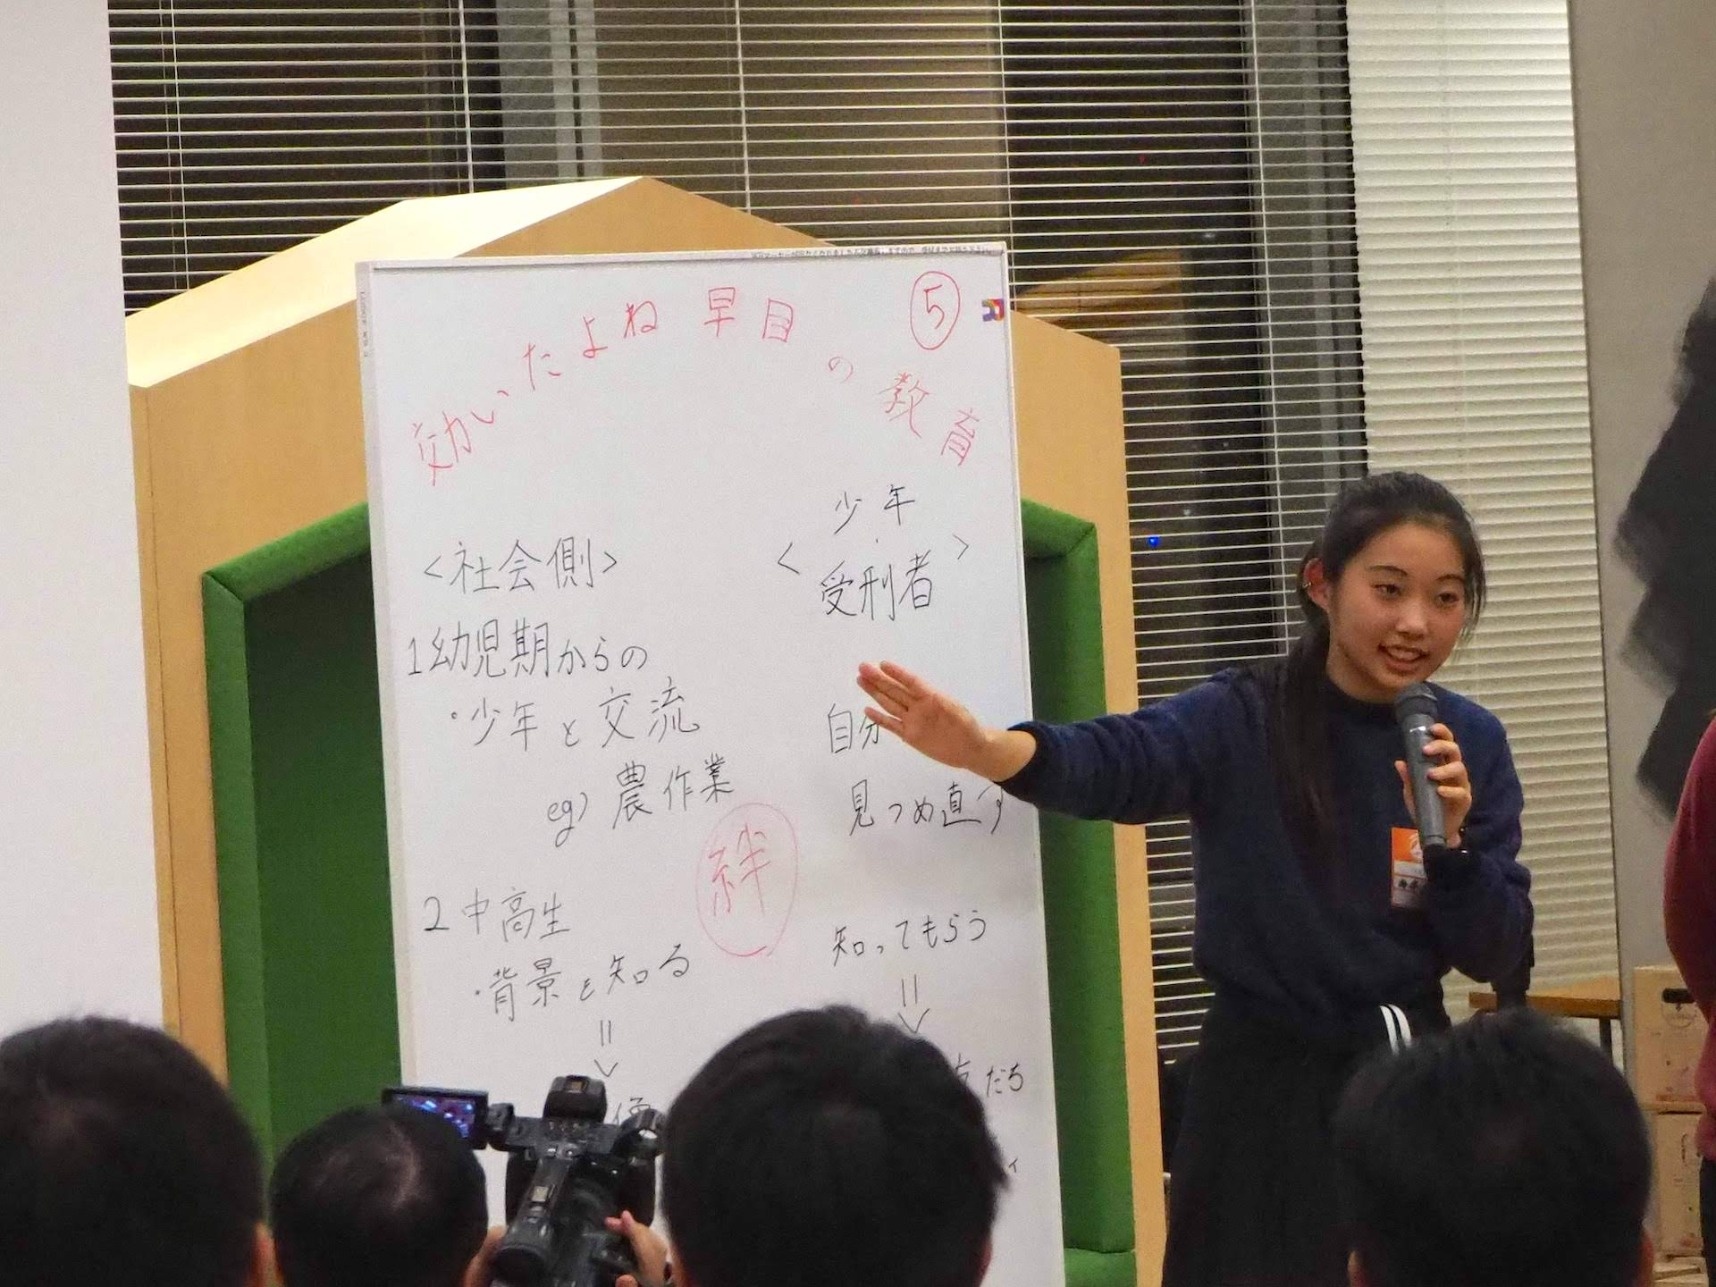 効いたよね早目の教育
⑤
<社会側>
1 幼児期からの
・少年と交流
eg) 農作業
絆
2 中高生
・背景を知る
⇓
<少年・受刑者>
自分
見つめ直す
知ってもらう
⇓
だち